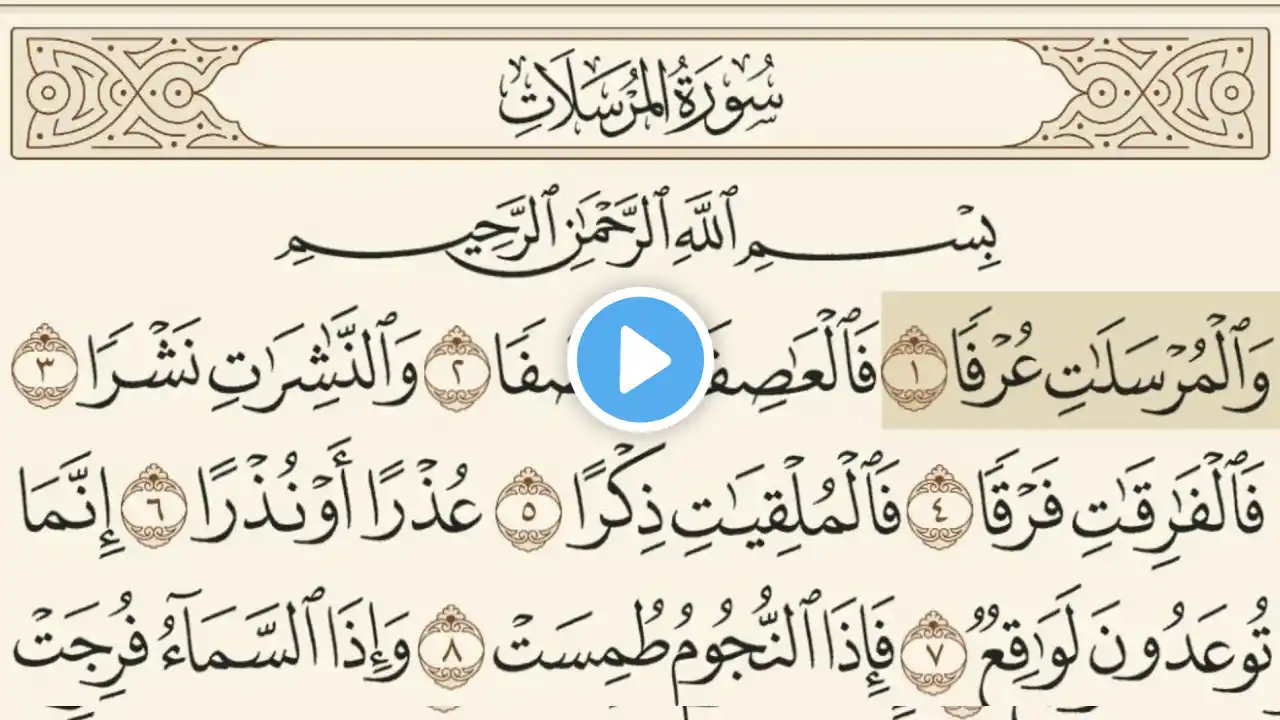 سُورَةُ المُرْسَلَاتِ
بِسْمِ ٱللَّهِ ٱلرَّحْمَٰنِ ٱلرَّحِيمِ
وَٱلْمُرْسَلَٰتِ عُرْفًا ١ ٢ وَٱلنَّٰشِرَٰتِ نَشْرًا ٣
فَٱلْفَٰرِقَٰتِ فَرْقًا ٤ فَٱلْمُلْقِيَٰتِ ذِكْرًا ٥ عُذْرًا أَوْ نُذْرًا ٦ إِنَّمَا
تُوعَدُونَ لَوَٰقِعٌ ٧ فَإِذَا ٱلنُّجُومُ طُمِسَتْ ٨ وَإِذَا ٱلسَّمَآءُ فُرِجَتْ